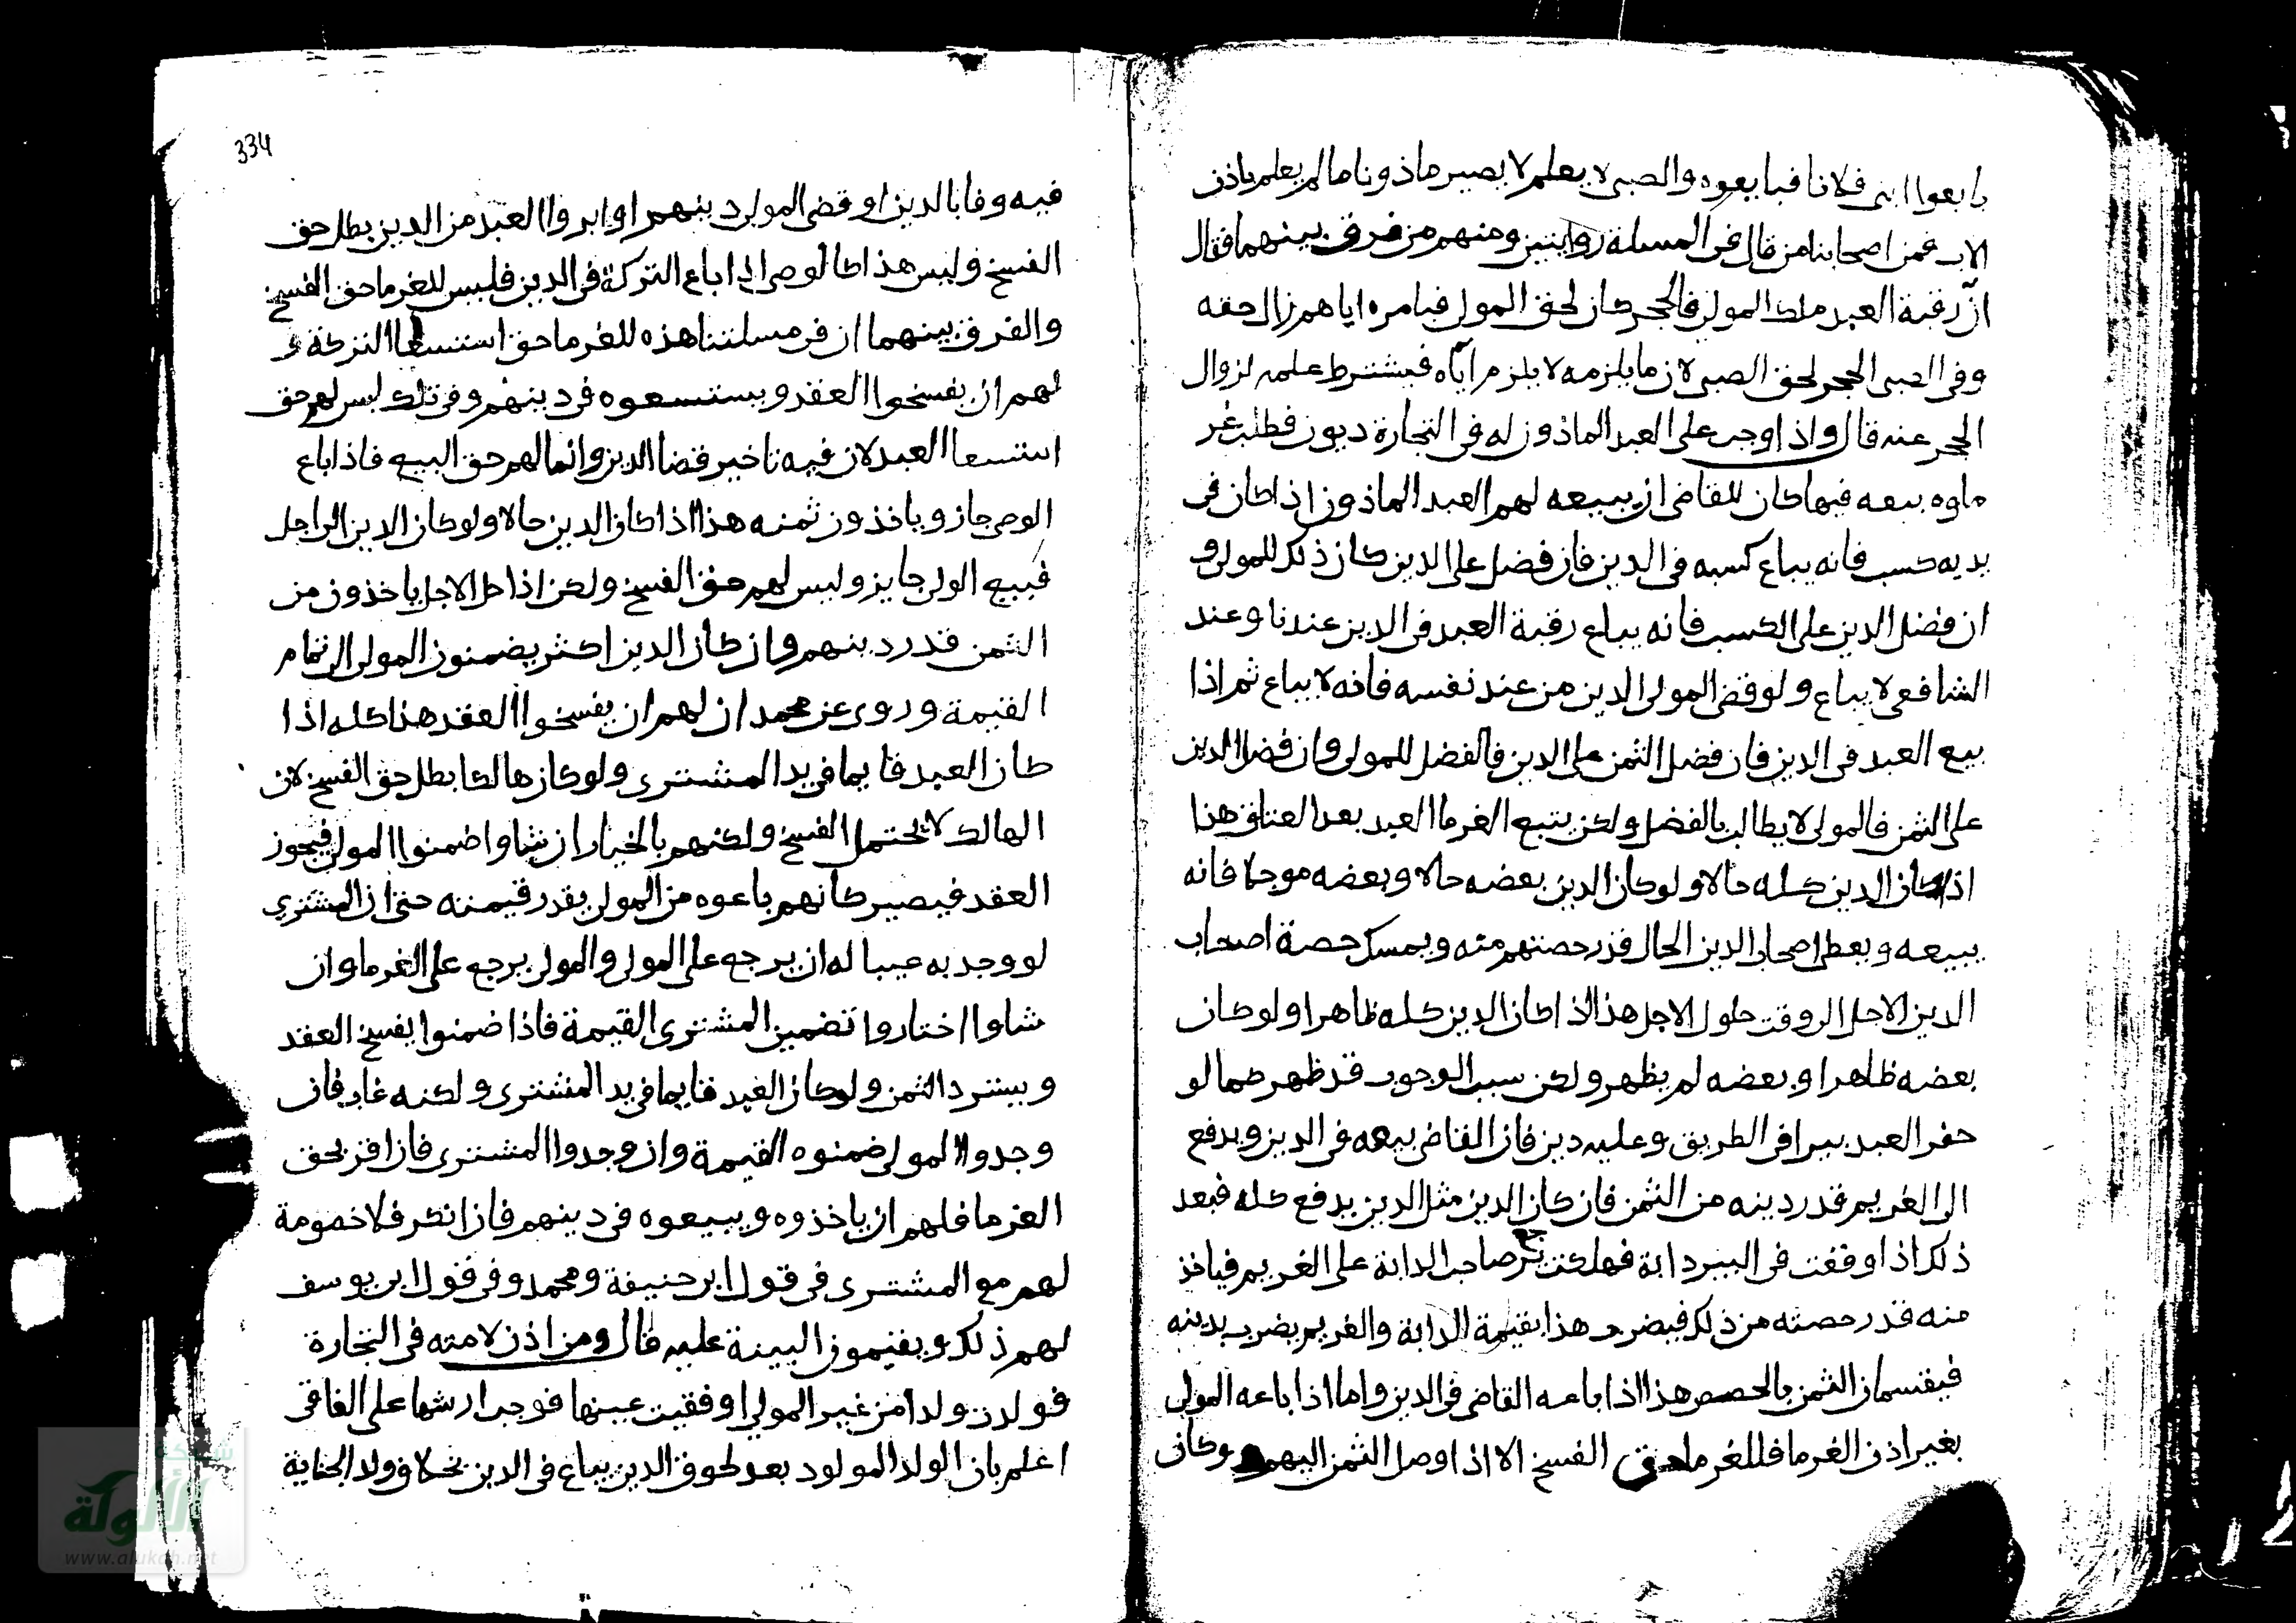 بايعوا ابني فلانا فبايعوه والصبي لا يعلم لا يصير ماذونا ما لم يعلم باذن
الاب فمن اصحابنا من قال في المسلة روايتين ومنهم من فرق بينهما فقال
ان رقبة العبد ملك المولى فالحجر كان لحق المولى فبامره اياهم زال حقه
وفي الصبي الحجر لحق الصبي لان ما يلزمه لا يلزم اباه فيشترط علمه لزوال
الحجر عنه قال واذا وجب على العبد الماذون له في التجارة ديون فطلب غر
ماوه بيعه فيها كان للقاضي ان يبيعه لهم العبد الماذون اذا كان في
يديه كسب فانه يباع كسبه في الدين فان فضل على الدين كان ذلك للمولى و
ان فضل الدين على الكسب فانه يباع رقبة العبد في الدين عندنا وعند
الشافعي لا يباع ولو قضى المولى الدين من عند نفسه فانه لا يباع ثم اذا
بيع العبد في الدين فان فضل الثمن على الدين فالفضل للمولى وان فضل الدين
على الثمن فالمولى لا يطالب بالفضل ولكن يتبع الغرما العبد بعد العتاق هذا
اذا كان الدين كله حالا ولو كان الدين بعضه حالا وبعضه موجلا فانه
يبيعه ويعطي اصحاب الدين الحال قدر حصتهم منه ويمسك حصة اصحاب
الدين الاجل الى وقت حلول الاجل هذا اذا كان الدين كله ظاهرا ولو كان
بعضه ظاهرا وبعضه لم يظهر ولكن سبب الوجوب قد ظهر كما لو
حفر العبد بيرا في الطريق وعليه دين فان القاضي يبيعه في الدين ويدفع
الى الغريم قدر دينه من الثمن فان كان الدين مثل الدين يدفع كله فبعد
ذلك اذا وقعت في البير دابة فهلكت يرجع صاحب الدابة على الغريم فياخذ
منه قدر حصته من ذلك فيضرب هذا بقيمة الدابة والغريم يضرب بدينه
فيقتسمان الثمن بالحصص هذا اذا باعه القاضي في الدين واما اذا باعه المولى
بغير اذن الغرما فللغرما حق الفسخ الا اذا وصل الثمن اليهم وكان
334
فيه وفا بالدين او قضى المولى دينهم او ابروا العبد من الدين بطل حق
الفسخ وليس هذا كالوصي اذا باع التركة في الدين فليس للغرما حق الفسخ
والفرق بينهما ان في مسلتنا هذه للغرما حق استسعا التركة و
لهم ان يفسخوا العقد ويستسعوه في دينهم وفي تلك ليس لهم حق
استسعا العبد لان فيه تاخير قضا الدين وانما لهم حق البيع فاذا باع
الوصي جاز وياخذون ثمنه هذا اذا كان الدين حالا ولو كان الدين الى اجل
فبيع المولى جايز وليس لهم حق الفسخ ولكن اذا حل الاجل ياخذون من
الثمن قدر دينهم وان كان الدين اكثر يضمنون المولى الى تمام
القيمة وروي عن محمد ان لهم ان يفسخوا العقد هذا كله اذا
كان العبد قايما في يد المشتري ولو كان هالكا بطل حق الفسخ لان
الهالك لا يحتمل الفسخ ولكنهم بالخيار ان شاوا ضمنوا المولى فيجوز
العقد فيصير كانهم باعوه من المولى بقدر قيمته حتى ان المشتري
لو وجد به عيبا له ان يرجع على المولى والمولى يرجع على الغرما وان
شاوا اختاروا تضمين المشتري القيمة فاذا ضمنوا يفسخ العقد
ويسترد الثمن ولو كان العبد قايما في يد المشتري ولكنه غاب فان
وجدوا المولى ضمنوه القيمة وان وجدوا المشتري فان اقر بحق
الغرما فلهم ان ياخذوه ويبيعوه في دينهم فان انكر فلا خصومة
لهم مع المشتري في قول ابي حنيفة ومحمد وفي قول ابي يوسف
لهم ذلك ويقيمون البينة عليه قال ومن اذن لامته في التجارة
فولدت ولدا من غير المولى او فقيت عينها فوجب ارشها على الفاقي
اعلم بان الولد المولود بعد لحوق الدين يباع في الدين بخلاف ولد الجناية
شبكة
الألوكة
www.alukah.net